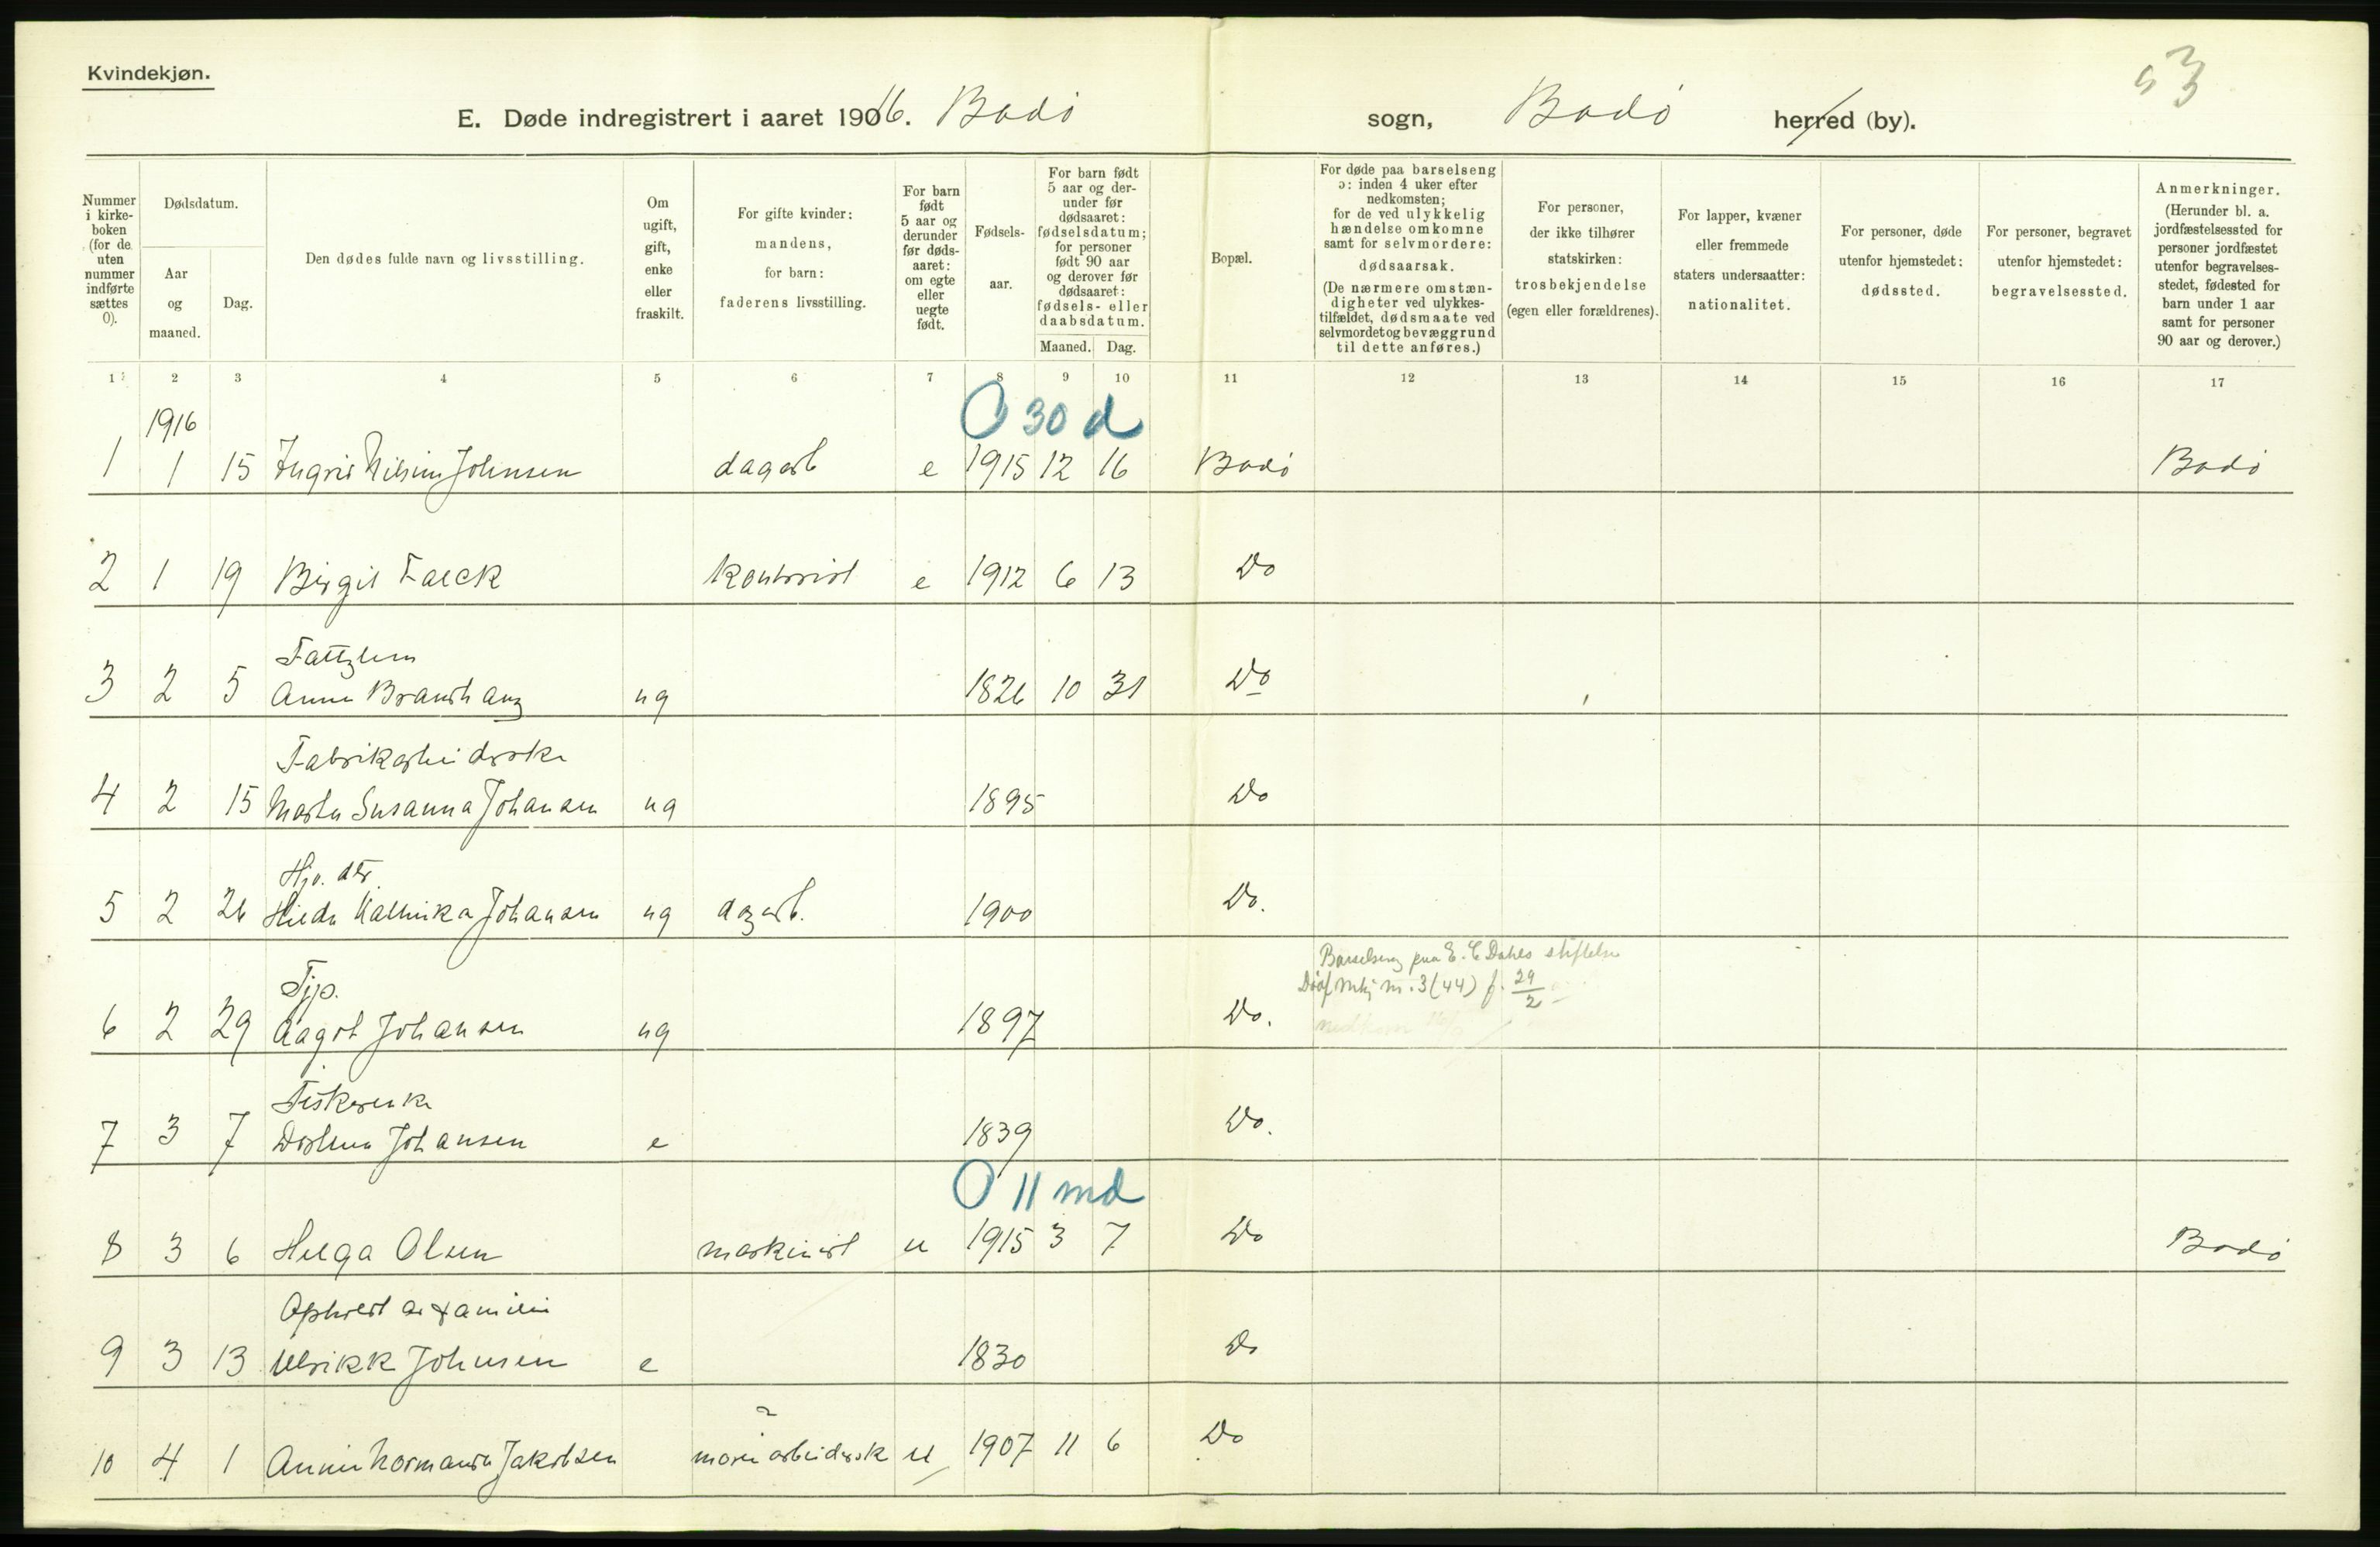 Kvindekjøn.
53
E. Døde indregistrert i aaret 1916. Bodø sogn, Bodø herred (by).
Nummer i kirke-boken (for de uten nummer indførte sættes 0).
Dødsdatum.
Aar og maaned.
Dag.
Den dødes fulde navn og livsstilling.
Om ugift, gift, enke eller fraskilt.
For gifte kvinder: mandens, for barn: faderens livsstilling.
For barn født 5 aar og derunder før døds-aaret: om egte eller uegte født.
Fødsels-aar.
For barn født 5 aar og der-under før dødsaaret: fødselsdatum; for personer født 90 aar og derover før dødsaaret: fødsels- eller daabsdatum.
Maaned. Dag.
Bopæl.
For døde paa barselseng ɔ: inden 4 uker efter nedkomsten; for de ved ulykkelig hændelse omkomne samt for selvmordere: dødsaarsak. (De nærmere omstæn-digheter ved ulykkes-tilfældet, dødsmaate ved selvmordet og bevæggrund til dette anføres.)
For personer, der ikke tilhører statskirken: trosbekjendelse (egen eller forældrenes).
For lapper, kvæner eller fremmede staters undersaatter: nationalitet.
For personer, døde utenfor hjemstedet: dødssted.
For personer, begravet utenfor hjemstedet: begravelsessted.
Anmerkninger. (Herunder bl. a. jordfæstelsessted for personer jordfæstet utenfor begravelses-stedet, fødested for barn under 1 aar samt for personer 90 aar og derover.)
1 2 3 4 5 6 7 8 9 10 11 12 13 14 15 16 17
1916
0 30 d
1 1 15 Ingrid Johnsen dagarb e 1915 12 16 Bodø Bodø
2 1 19 Birgit Falck kontorist e 1912 6 13 Do
3 2 5 Anna ug 1826 10 31 Do
Fabrikarbeiderske
4 2 15 Marta Susanna Johansen ug 1895 Do
Hjv. dtr.
5 2 26 Hilda Johansen ug dagarb. 1900 Do.
Barselseng paa E. C Dahls stiftelse
Tjp.
Mkj nr. 3 (44) f. 29/2
6 2 29 Aagot Johansen ug 1897 Do.
Fiskerenke
7 3 7 Johansen e 1839 Do.
0 11 md
8 3 6 Helga Olsen maskinist u 1915 3 7 Do Bodø
9 3 13 Ulrikk Johnsen e 1830 Do
10 4 1 Jakobsen arbeidersk u 1907 11 6 Do